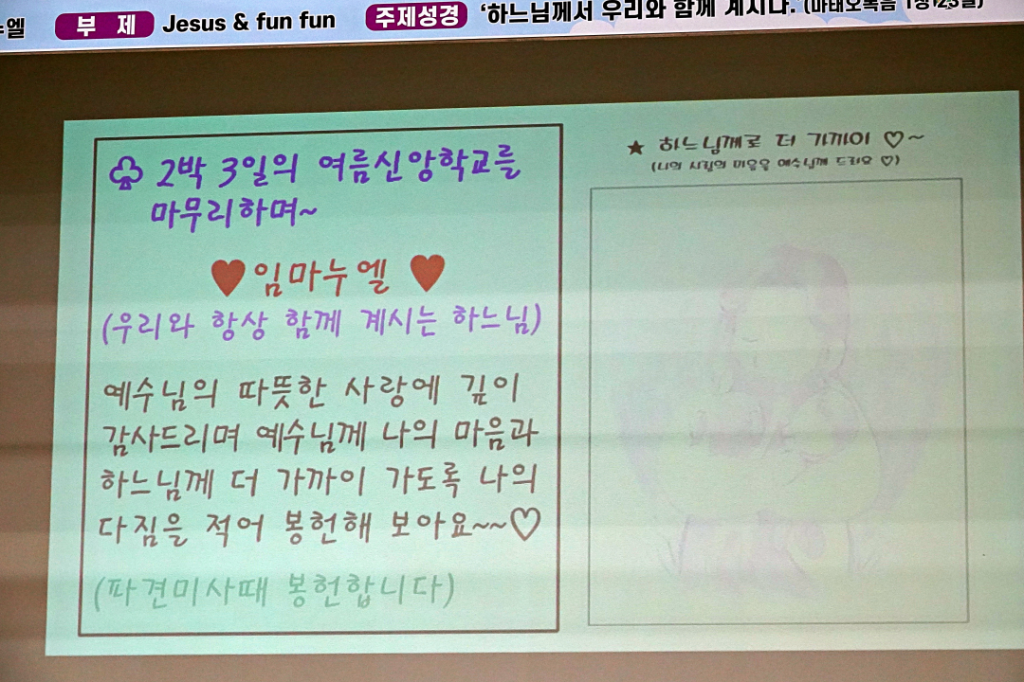 부 제 Jesus & fun fun 주제성경 ‘하느님께서 우리와 함께 계시다.
♧ 2박 3일의 여름신앙학교를
마무리하며~
♥임마누엘 ♥
(우리와 항상 함께 계시는 하느님)
예수님의 따뜻한 사랑에 깊이
감사드리며 예수님께 나의 마음과
하느님께 더 가까이 가도록 나의
다짐을 적어 봉헌해 보아요~~♡
(파견미사때 봉헌합니다)
★ 하느님께로 더 가까이 ♡~
(나의 사랑의 마음을 예수님께 드려요 ♡)